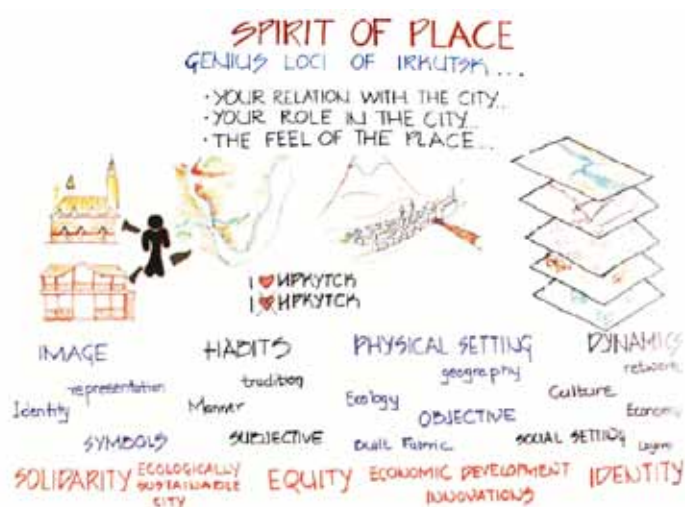 SPIRIT OF PLACE
GENIUS LOCI OF IRKUTSK...
• YOUR RELATION WITH THE CITY...
• YOUR ROLE IN THE CITY...
• THE FEEL OF THE PLACE...
I ❤ ИРКУТСК
I ❤ ИРКУТСК
IMAGE HABITS PHYSICAL SETTING DYNAMICS
representation tradition geography network
Identity Manner Ecology OBJECTIVE Culture Economy
SYMBOLS SUBJECTIVE Built Fabric SOCIAL SETTING Layers
SOLIDARITY ECOLOGICALLY SUSTAINABLE CITY EQUITY ECONOMIC DEVELOPMENT INNOVATIONS IDENTITY